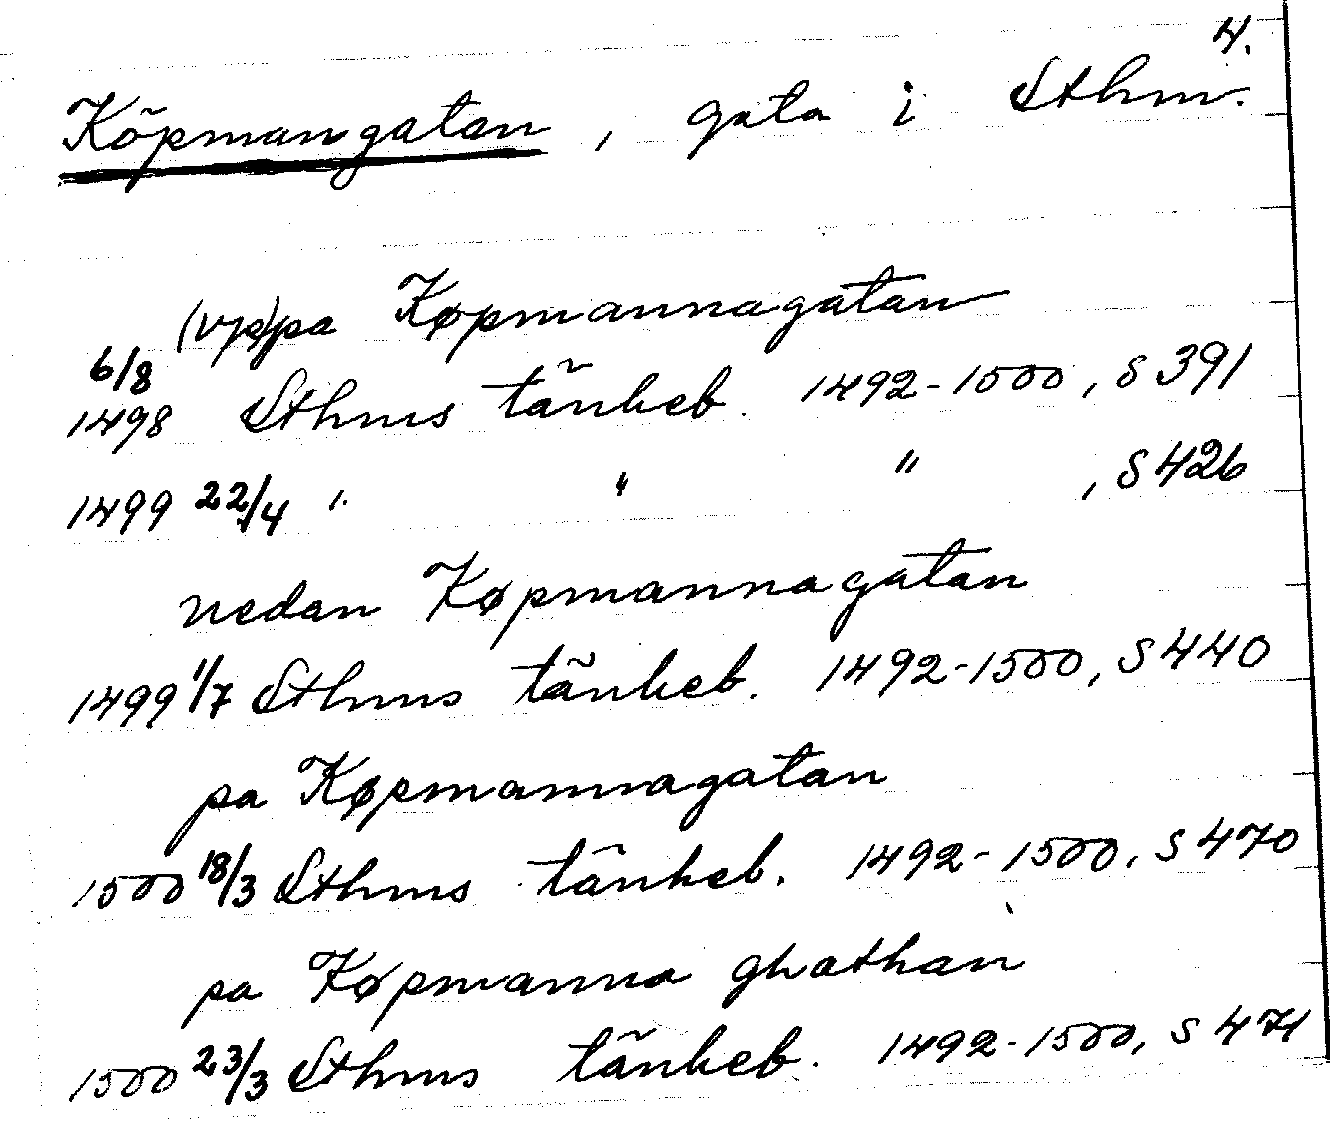 4.
Köpmangatan, gata i Sthm.
(vp)pa Køpmannagatan
6/8
1498 Sthms tänkeb. 1492-1500, S 391
1499 22/4 " " " , S 426
nedan Køpmannagatan
1499 1/7 Sthms tänkeb. 1492-1500, S 440
pa Køpmannagatan
1500 18/3 Sthms tänkeb. 1492-1500, S 470
pa Køpmanna ghathan
1500 23/3 Sthms tänkeb. 1492-1500, S 471